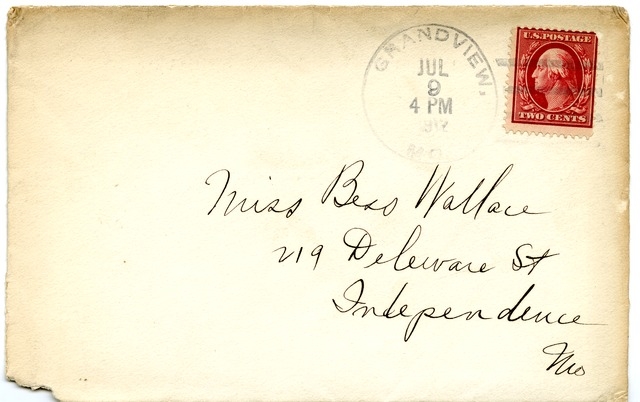 GRANDVIEW,
JUL
9
4 PM
1912
U.S. POSTAGE
TWO CENTS
Miss Bess Wallace
219 Deleware St
Independence
Mo